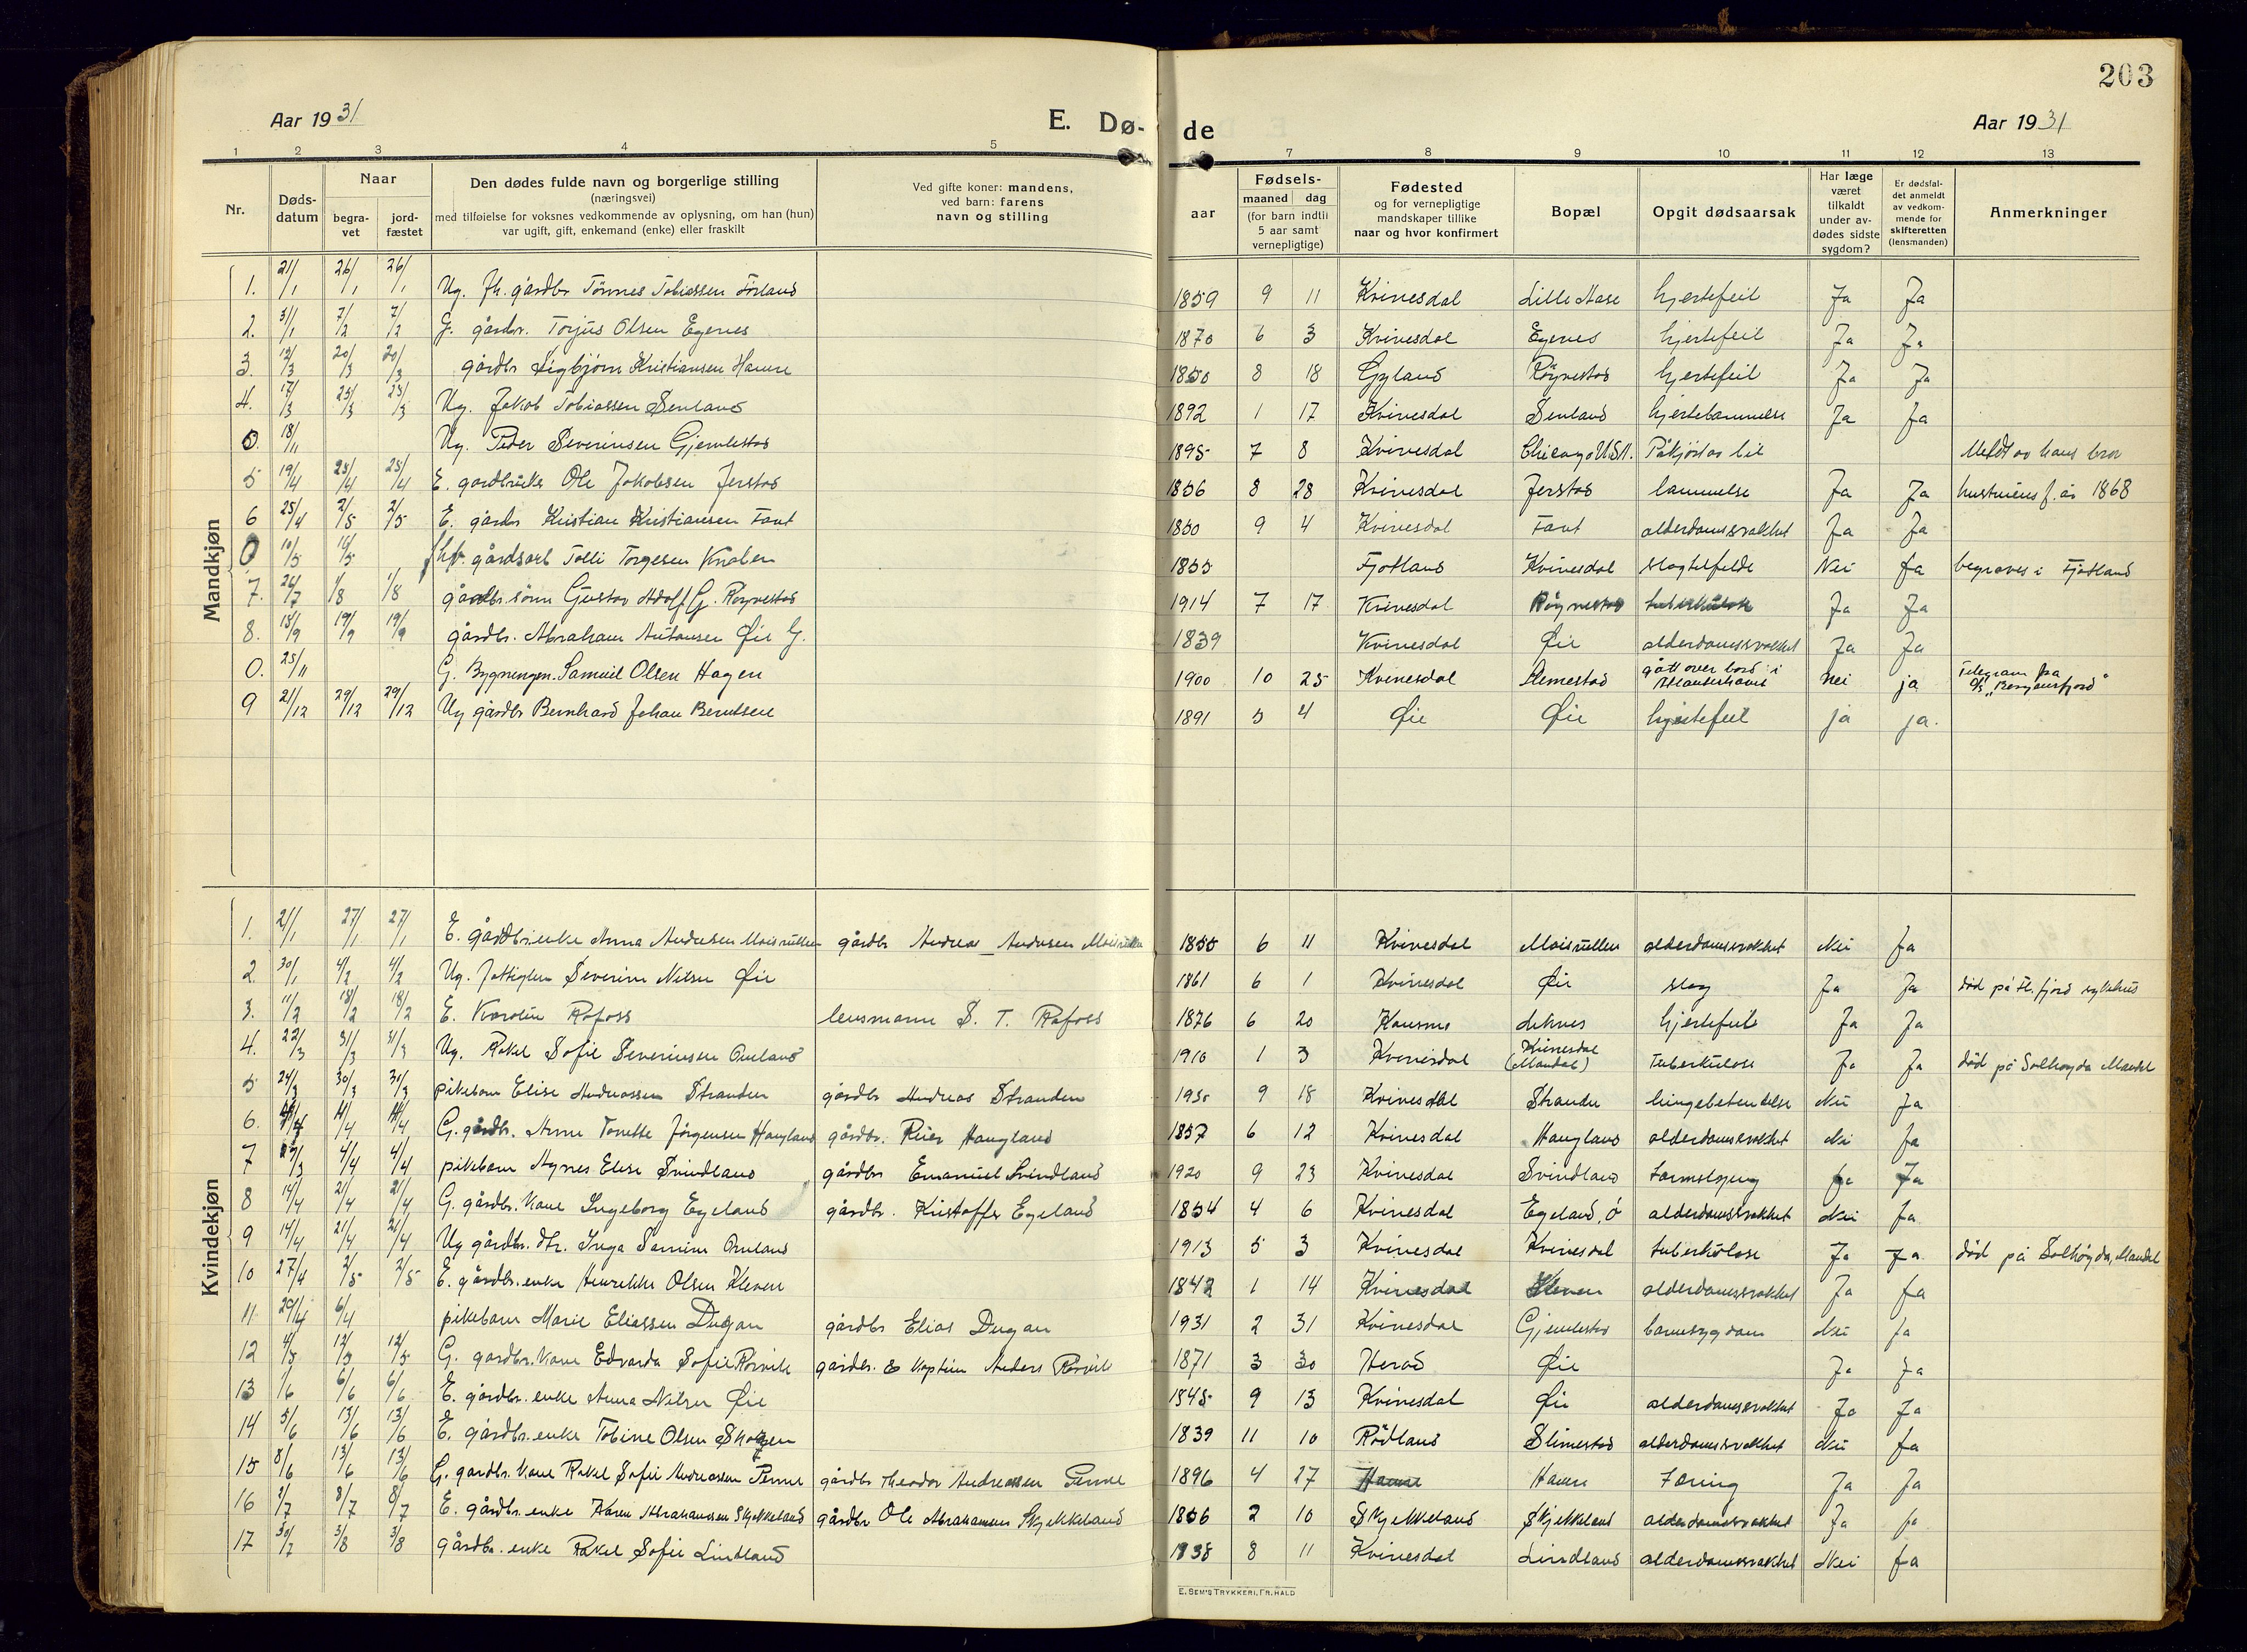 203
Aar 1931
E. Dø-
de
Aar 1931
1 2 3 4 5 7 8 9 10 11 12 13
Nr.
Døds-
datum
Naar
begra-
vet
jord-
fæstet
Den dødes fulde navn og borgerlige stilling
(næringsvei)
med tilføielse for voksnes vedkommende av oplysning, om han (hun)
var ugift, gift, enkemand (enke) eller fraskilt
Ved gifte koner: mandens,
ved barn: farens
navn og stilling
Fødsels-
aar
maaned dag
(for barn indtil
5 aar samt
vernepligtige)
Fødested
og for vernepligtige
mandskaper tillike
naar og hvor konfirmert
Bopæl
Opgit dødsaarsak
Har læge
været
tilkaldt
under av-
dødes sidste
sygdom?
Er dødsfal-
det anmeldt
av vedkom-
mende for
skifteretten
(lensmanden)
Anmerkninger
Mandkjøn
1. 21/1 26/1 26/1 Ug. fh. gårdbr Tönnes Tobiassen Förland 1859 9 11 Kvinesdal Lille Aase hjertefeil Ja Ja
2. 31/1 7/2 7/2 G. gårdbr. Torjus Olsen Egenes 1870 6 3 Kvinesdal Egenes hjertefeil Ja Ja
3. 12/3 20/3 20/3 gårdbr Sigbjörn Kristiansen Hamre 1850 8 18 Gyland Röynestad hjertefeil Ja Ja
4. 17/3 25/3 25/3 Ug. Jakob Tobiassen Senland 1892 1 17 Kvinesdal Senland hjertelammelse Ja Ja
0. 18/11 Ug. Peder Severinsen Gjemlestad 1895 7 8 Kvinesdal Chicago U.S.A. Påkjört av bil Meldt av hans bror
5 19/4 25/4 25/4 E. gardbruker Ole Jakobsen Jerstad 1856 8 28 Kvinesdal Jerstad lammelse Ja Ja hustruens f. år 1868
6 25/4 2/5 2/5 E. gårdbr Kristian Kristiansen Faret 1850 9 4 Kvinesdal alderdomssvakhet Ja Ja
0 10/5 16/5 gårdsarb Tolli Torgesen Knaben 1855 Fjotland Kvinesdal slagtilfelde Nei Ja begraves i Fjotland
7. 26/7 1/8 1/8 gårdbr. sönn Gustav Adolf G. Röynestad 1914 7 17 Kvinesdal Röynestad tuberkulose Ja Ja
8. 15/9 19/9 19/9 gårdbr. Abraham Antonsen Øie G. 1839 Kvinesdal Øie alderdomssvakhet Ja Ja
0. 25/11 G. Bygningsn. Samuel Olsen Hagen 1900 10 25 Kvinesdal Slemestad gått over bord i
Atlanterhavet nei ja Telegram fra
D/S "Bergensfjord"
9 21/12 29/12 29/12 Ug gårdbr Bernhard Johan Berntsen 1891 5 4 Øie Øie hjertefeil ja ja.
Kvindekjøn
1. 21/1 27/1 27/1 E. gårdbr.enke Anna Andersen Moisrullen gårdbr Andreas Andersen Moisrullen 1855 6 11 Kvinesdal Moisrullen alderdomssvakhet Nei Ja
2. 30/1 4/2 4/2 Ug. Severine Nilsen Øie 1861 6 1 Kvinesdal Øie slag Ja Ja död på Fl.fjord sykehus
3. 11/2 18/2 18/2 E. Karolin Rafoss lensmann S. T. Rafoss 1876 6 20 Liknes hjertefeil Ja Ja
4. 22/3 31/3 31/3 Ug. Rakel Sofie Severinsen Omland 1910 1 3 Kvinesdal Kvinesdal
(Mandal) Tuberkulose Ja Ja död på Solhøgda Mandal
5 24/3 30/3 30/3 pikebarn Elise Andreassen Stranden gårdbr Andreas Stranden 1930 9 18 Kvinesdal Stranden lungebetendelse Nei Ja
6. 4/4 11/4 G. gårdbr. Anne Tonette Jörgensen Haugland gårdbr. Reier Haugland 1857 6 12 Kvinesdal Haugland alderdomssvakhet Nei Ja
7 29/3 4/4 4/4 pikebarn Agnes Elise Svindland gårdbr Emanuel Svindland 1920 9 23 Kvinesdal Svindland tarmslyng Ja Ja
8 14/4 21/4 21/4 G. gårdbr. kone Ingeborg Egeland gårdbr. Kristoffer Egeland 1854 4 6 Kvinesdal Egeland, Ö alderdomssvakhet Nei Ja
9 14/4 21/4 21/4 Ug gårdbr. dtr. Inga Samine Omland 1913 5 3 Kvinesdal Kvinesdal tuberkulose Ja Ja död på Solhøgda, Mandal
10 27/4 2/5 2/5 E. gårdbr. enke Henrikke Olsen Kleven 1842 1 14 Kvinesdal Kleven alderdomssvakhet Ja Ja
11 29/4 6/4 pikebarn Marie Eliassen Dugan gårdbr Elias Dugan 1931 2 31 Kvinesdal Gjemlestad barnesygdom Nei Ja
12 4/5 12/5 12/5 G. gardbr. kone Edvarda Sofie Rörvik gårdbr. & kaptein Anders Rörvik 1871 3 30 Herad Øie Ja Ja
13 1/6 6/6 6/6 E. gårdbr. enke Anna Nilsen Øie 1845 9 13 Kvinesdal Øie alderdomssvakhet Ja Ja
14 5/6 13/6 13/6 E. gårdbr. enke Tobine Olsen Skogen 1839 11 10 Rödland Slimestad alderdomssvakhet Nei Ja
15 8/6 13/6 13/6 G. gardbr. kone Rakel Sofie Andreassen Penne gårdbr Theodor Andreassen Penne 1896 4 27 Hamre Hamre Tæring Ja Ja
16 2/7 8/7 8/7 E. gårdbr. enke Karen Abrahamsen Skjekkeland gårdbr Ole Abrahamsen Skjekkeland 1856 2 10 Skjekkeland Skjekkeland alderdomssvakhet Ja Ja
17 30/7 3/8 3/8 gårdbr. enke Rakel Sofie Lindland 1838 8 11 Kvinesdal Lindland alderdomssvakhet Nei Ja
E. SEM'S TRYKKERI, FR. HALD